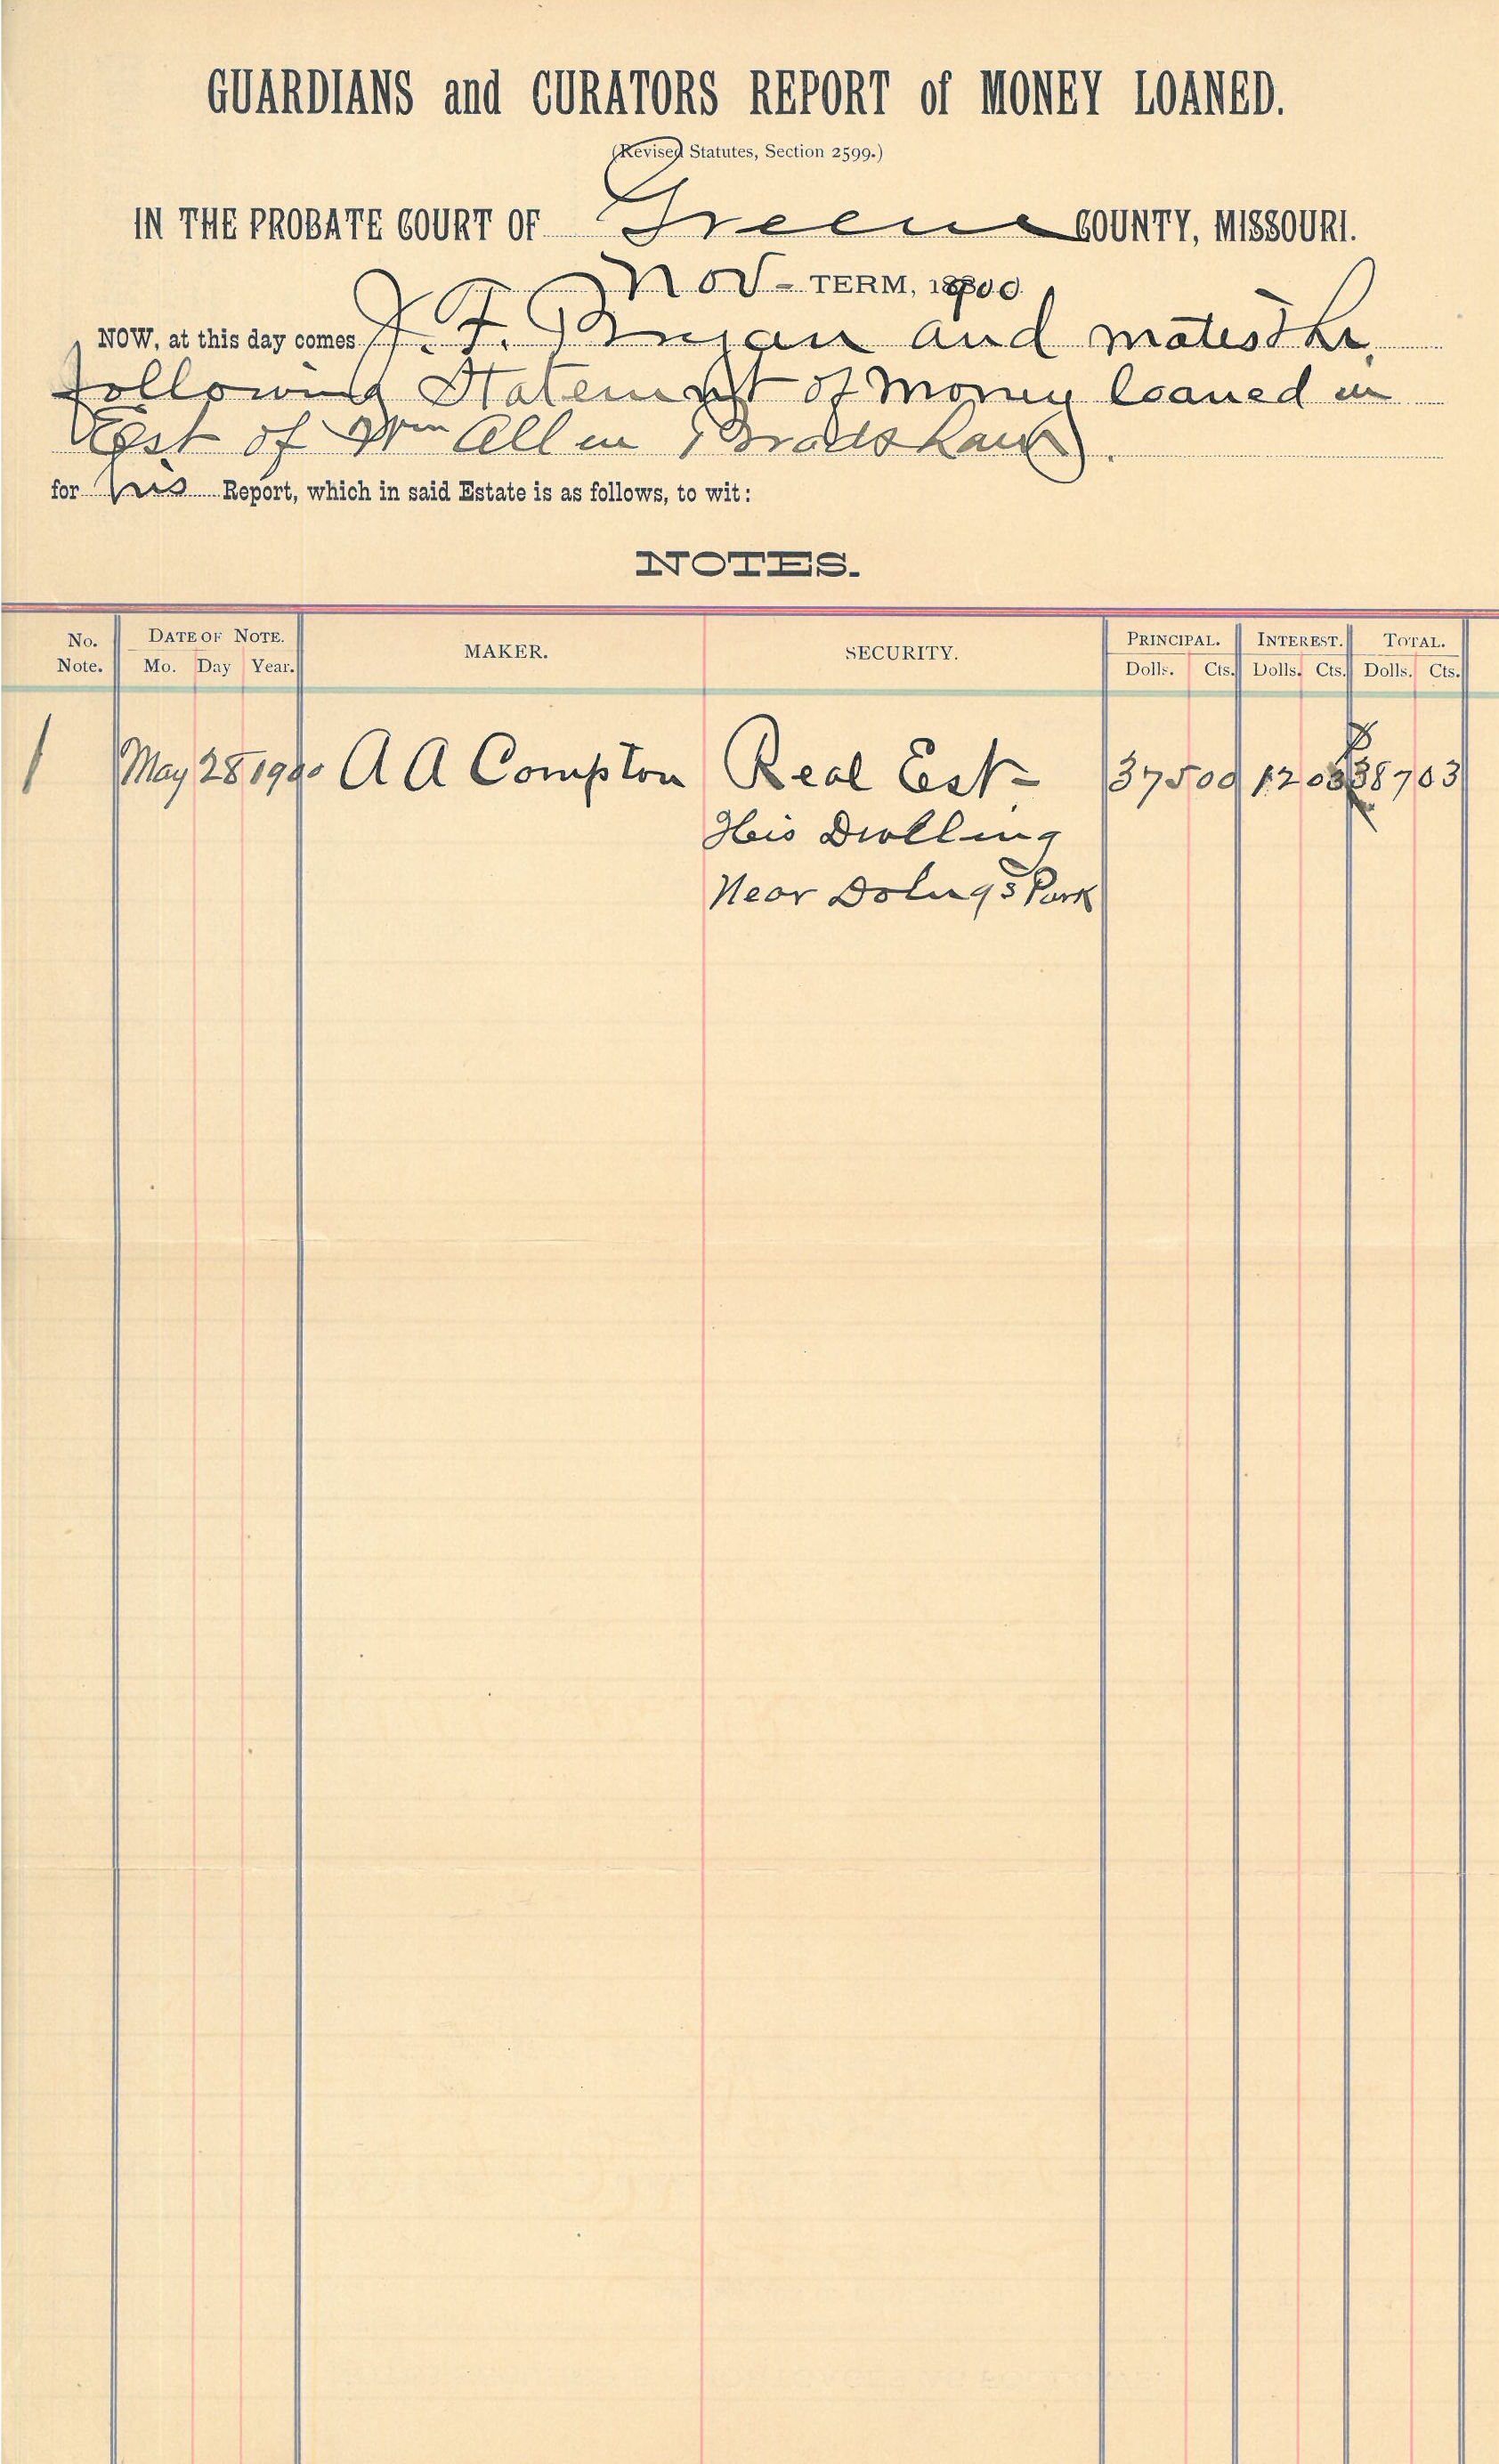 GUARDIANS and CURATORS REPORT of MONEY LOANED.
(Revised Statutes, Section 2599.)
IN THE PROBATE COURT OF Greene COUNTY, MISSOURI.
Nov - TERM, 1900
NOW, at this day comes J. F. Bryan and mates the
following Statement of money loaned in
Est of Wm Allen Bradshaw.
for his Report, which in said Estate is as follows, to wit:
NOTES.
No. Note. DATE OF NOTE. Mo. Day Year. MAKER. SECURITY. PRINCIPAL. Dolls. Cts. INTEREST. Dolls. Cts. TOTAL. Dolls. Cts.
1 May 28 1900 A A Compton Real Est- 375 00 12 03 $387 03
His Dwelling
Near Doling's Park